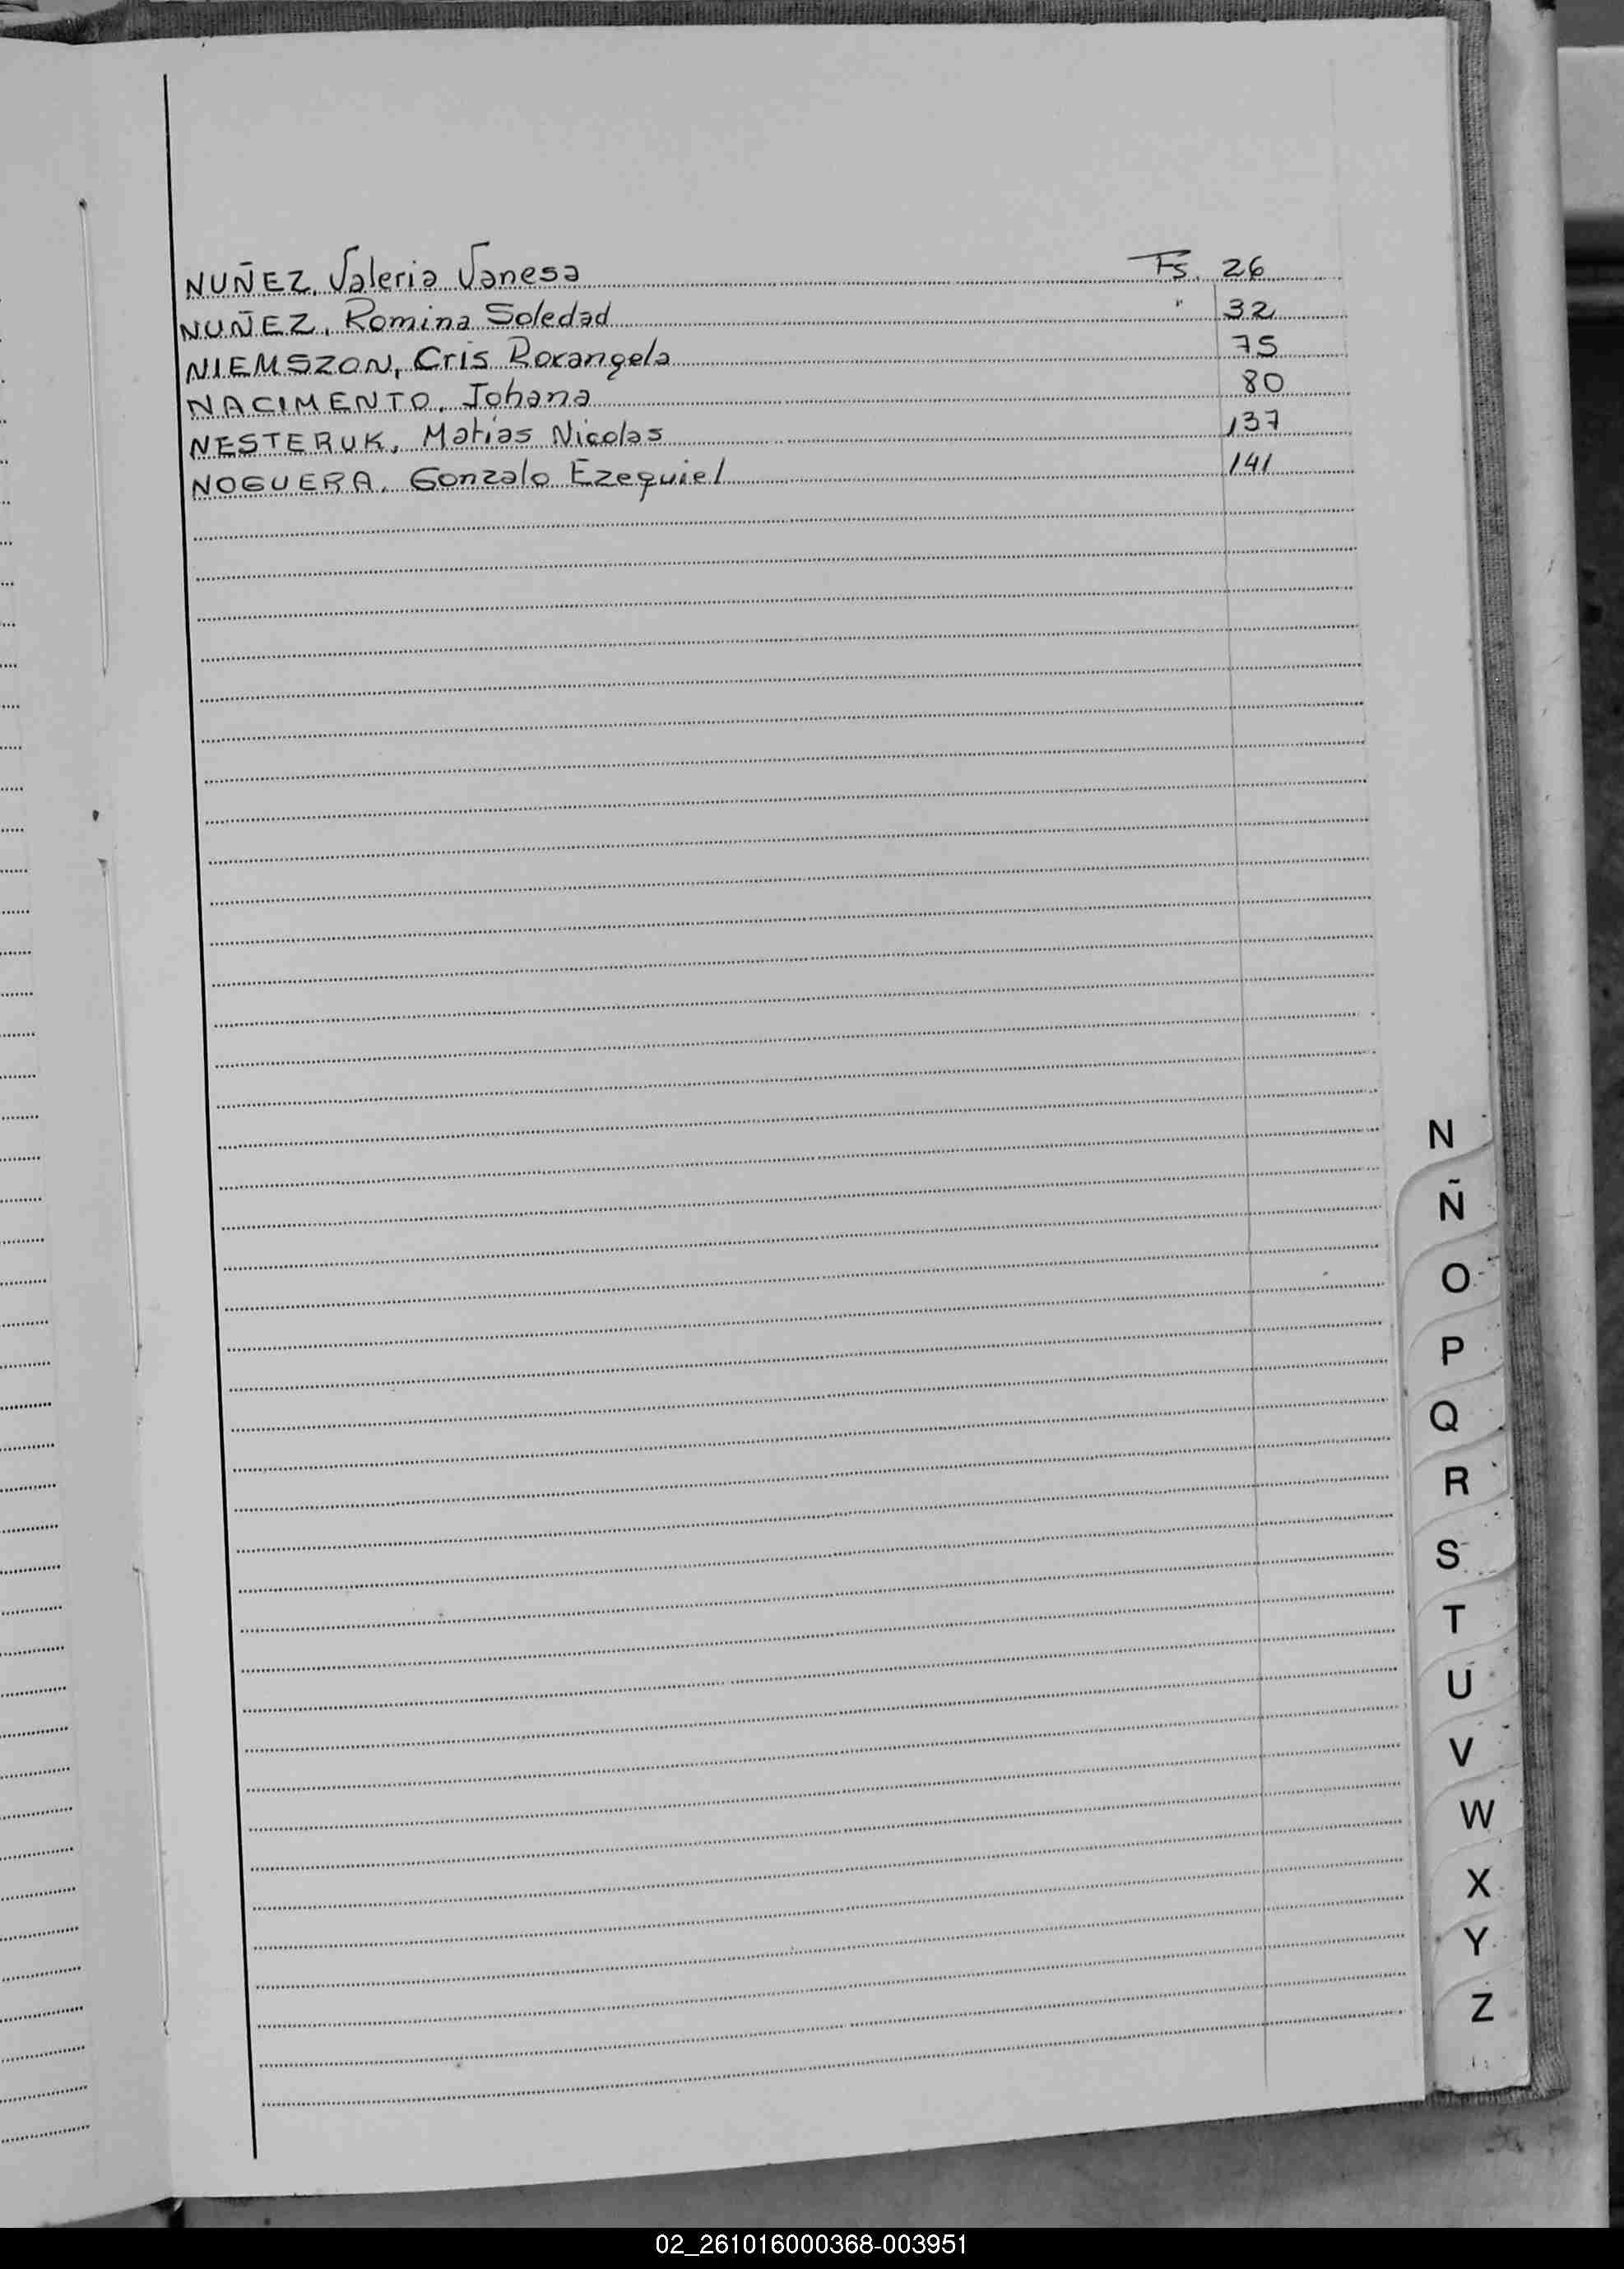 NUÑEZ, Valeria Vanesa Fs. 26
NUÑEZ, Romina Soledad " 32
NIEMSZON, Cris Roxangela 75
NACIMENTO, Johana 80
NESTERUK, Matias Nicolas 137
NOGUERA, Gonzalo Ezequiel 141
N
Ñ
O
P
Q
R
S
T
U
V
W
X
Y
Z
02_261016000368-003951